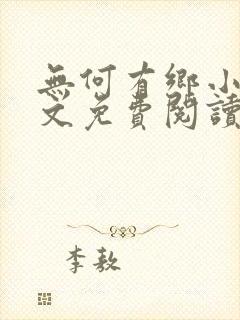 無何有鄉小
文免費閱讀
李敖